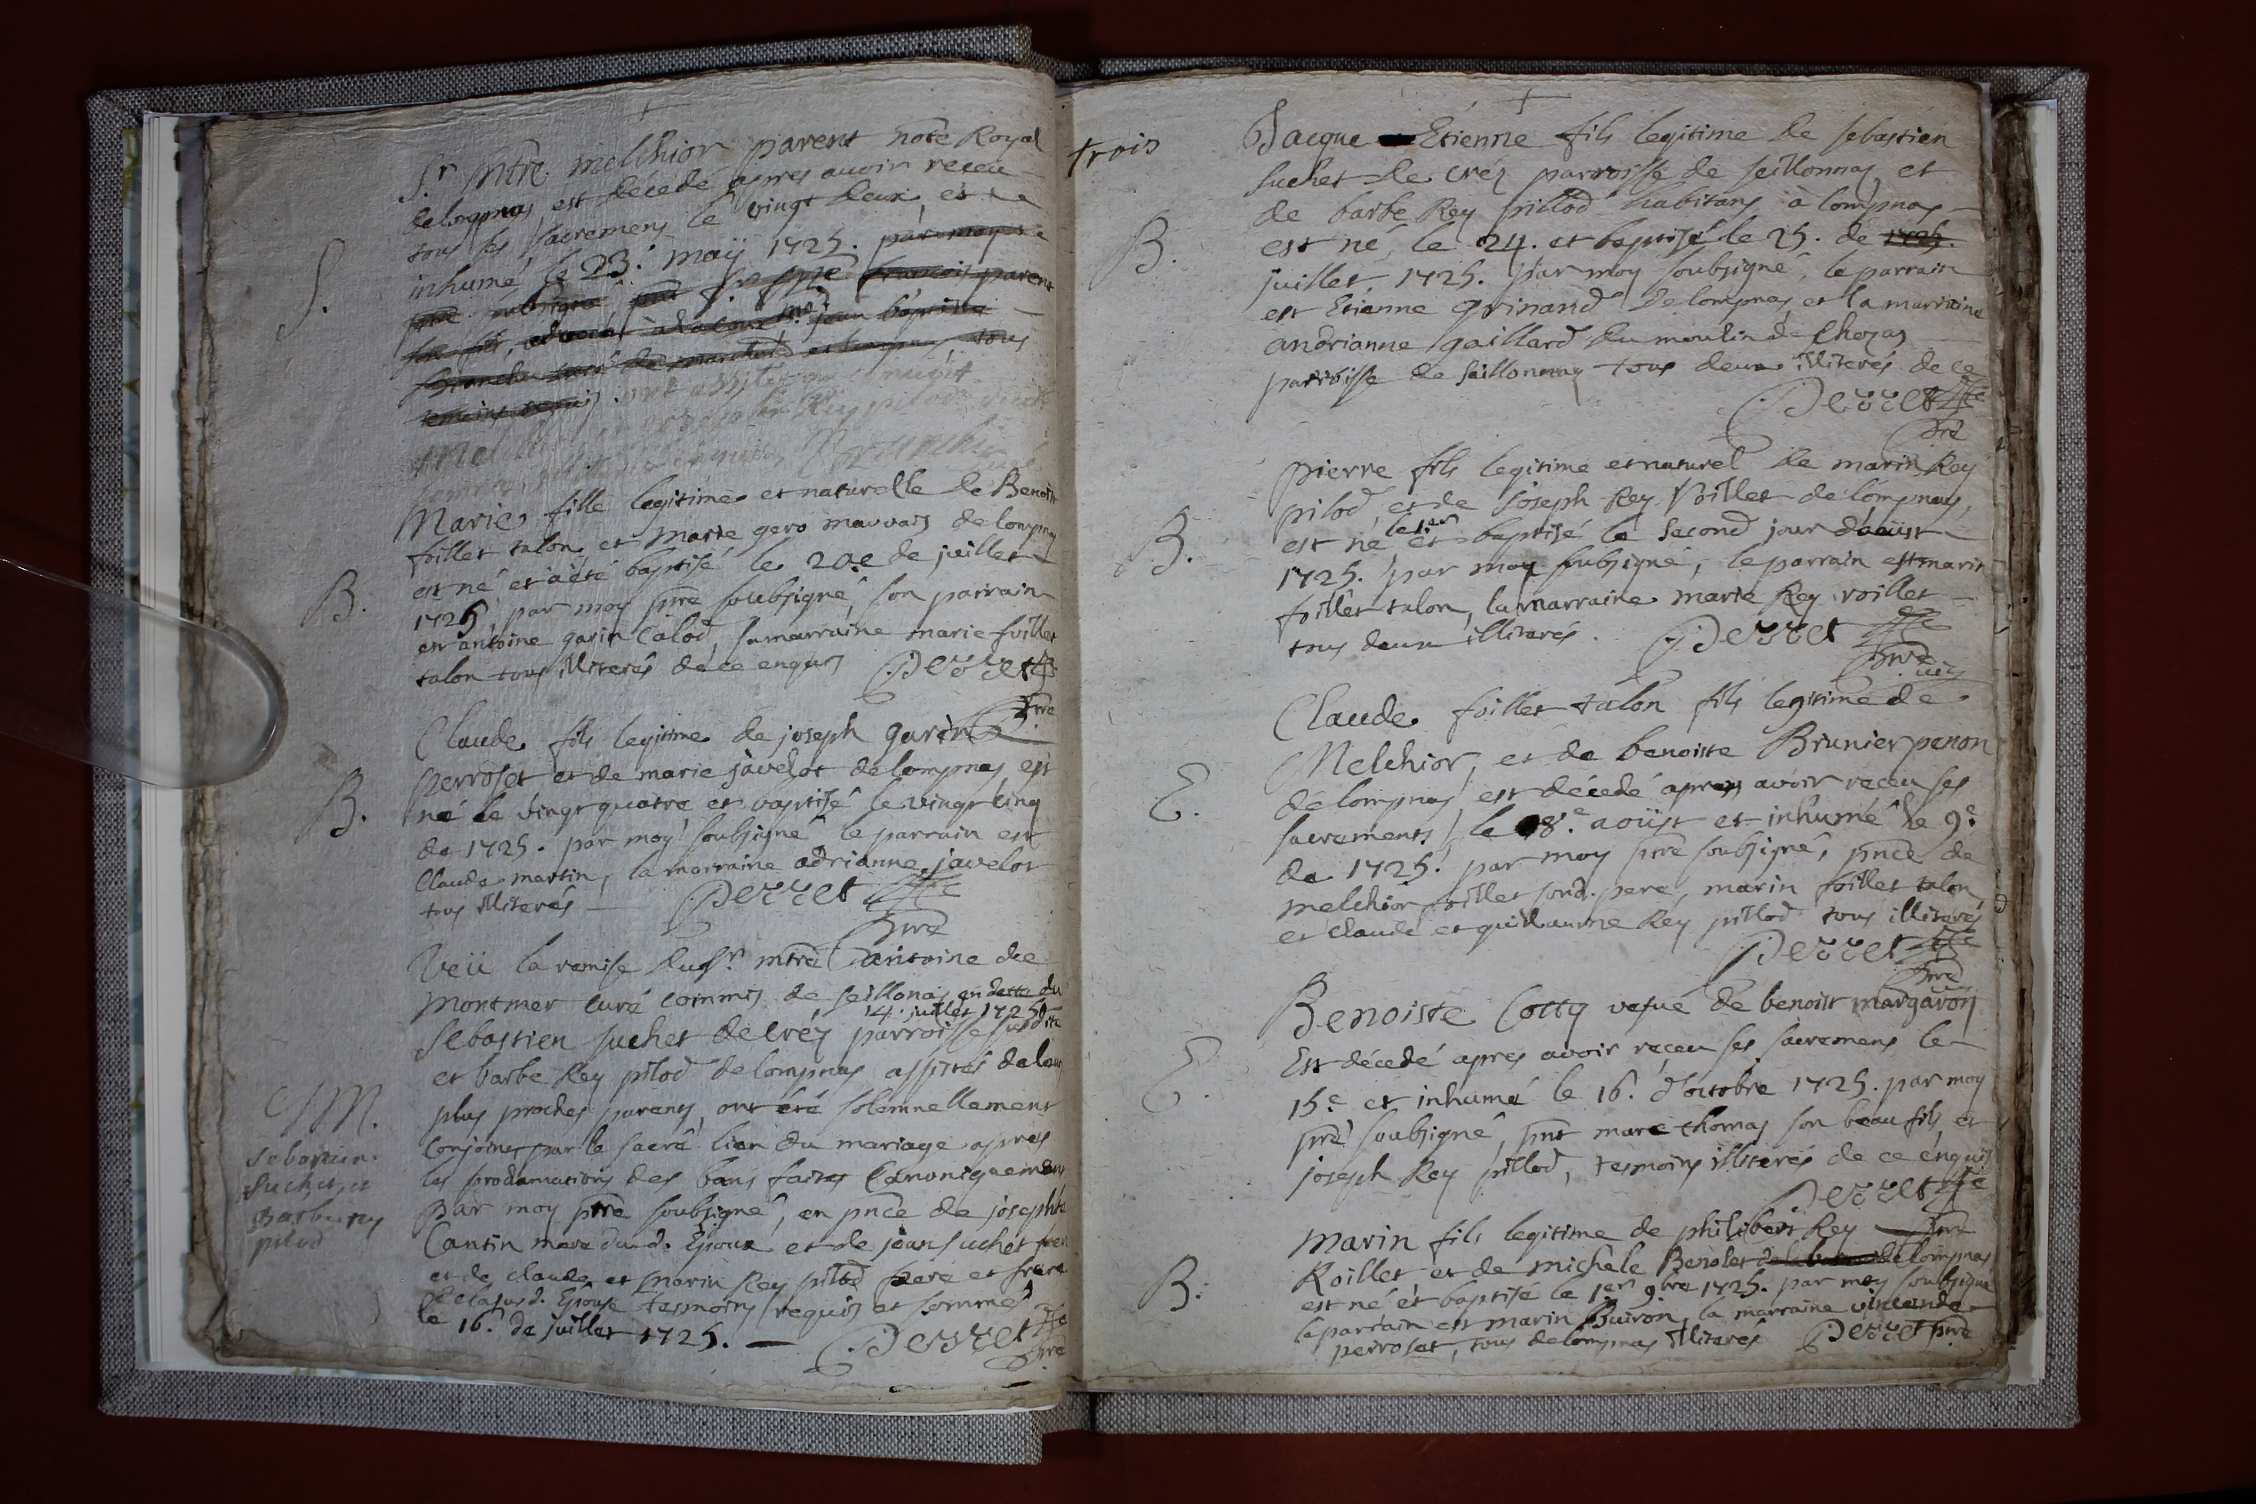 S.r mtre. melchior parent notre Royal
de lompnas est décedé apres avoir receu
tous ses sacremens le vingt deux, et
inhumé le 23.e maÿ 1725. par moy
ptre soubsigné françois parent
son fils, advocat à la cour jean baptiste
tous
temoins requis
S.
Marie fille legitime et naturelle de Benoit
foillet talon et marie gero mauvais de lompnas
est né et à été baptisé le 20.e de juillet
1725 par moy ptre soubsigné, son parrain
est antoine garin calod, sa marraine marie foillet
talon tous illiterés de ce enquis Perret
ptre
B.
Claude fils legitime de joseph garin
perroset et de marie javelot de lompnas est
né le vingt quatre et baptisé le vingt cinq
de 1725. par moy soubsigné le parrain est
Claude martin, la marraine adrianne javelot
tous illiterés Perret
ptre
B.
Veü la remise du Sr. mtre antoine de
montmer curé commis de seillonas en datte du
14. juillet 1725
Sebastien suchet de créy parroisse susdite
et barbe Rey pilod de lompnas assistés de leur
plus proches parents, ont été solemnellement
conjoints par le sacré lien du mariage apres
les proclamations des bans faites canoniquement
par moy ptre soubsigné, en pnce de josephte
Cantin mere dud. Epoux et de jean suchet frere
et de claude et marin Rey pilod pere et frere
de lasusd. Epouse tesmoins requis et sommés
le 16. de juillet 1725. Perret
ptre
M.
sebastien
suchet et
Barbe rey
pilod
trois
Jacque Etienne fils legitime de sebastien
suchet de créz parroisse de seillonnas et
de barbe Rey pillod habitans à lompnas
est né le 24. et baptisé le 25. de 1725.
juillet 1725. par moy soubsigné, le parrain
est Etienne grinand de lompnas et la marraine
andrianne gaillard du moulin de Chozas
parroisse de seillonnas tous deux illiterés de ce
Perret
ptre
B.
pierre fils legitime et naturel de marin Rey
pilod et de joseph Rey Voillet de lompnas,
est né le 1.er et baptisé le second jour d'aoüst
1725. par moy soubsigné, le parrain est marin
foillet talon, la marraine marie Rey roillet
tous deux illiterés. Perret
ptre
B.
Claude foillet talon fils legitime de
Melchior, et de benoiste Brunier penon
de lompnas est décedé apres avoir receu ses
sacrements le 8.e aoüst et inhumé le 9.e
de 1725. par moy ptre soubsigné, pnce de
melchior foillet sond. pere, marin foillet talon
et claude et guillaume Réy pillod tous illiterés
Perret
ptre
E.
Benoiste Cotty vefue de benoist margaron
Est décedé apres avoir receu ses sacremens le
15.e et inhumé le 16. d'octobre 1725. par moy
ptre soubsigné, pnt marc thomas son beau fils et
joseph Rey pillod, tesmoins illiterés de ce enquis
Perret
ptre
E.
Marin fils legitime de philibert Rey
Roillet et de michele Benolet de lompnas
est né et baptisé le 1er 9.bre 1725. par moy soubsigné
le parrain est marin Buiron la marraine vincende
perroset, tous de lompnas illiterés Perret ptre
B.